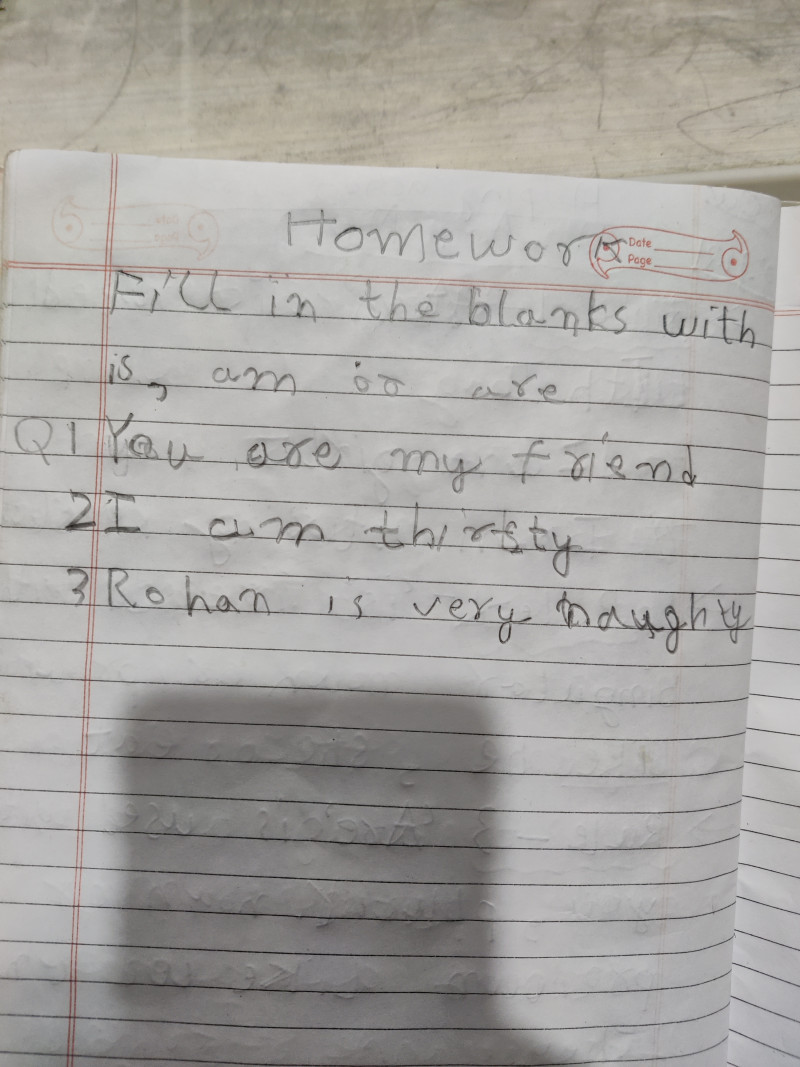 Homework
Date
Page
Fill in the blanks with
is, am or are
Q1 You are my friend
2 I am thirsty
3 Rohan is very naughty